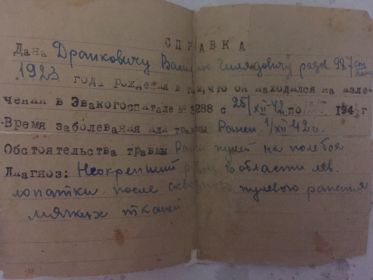 СПРАВКА
Дана Драпковичу
1923 года рождения в том, что он находился на изле-
чении в Эвакогоспитале № 3288 с 25/XII-42 по 194 г
Время заболевания или травмы Ранен 1/XII 42 г.
Обстоятельства травмы Ранен пулей на поле боя
Диагноз: Неокрепший рубец области лев.
лопатки после сквозного пулевого ранения
мягких тканей